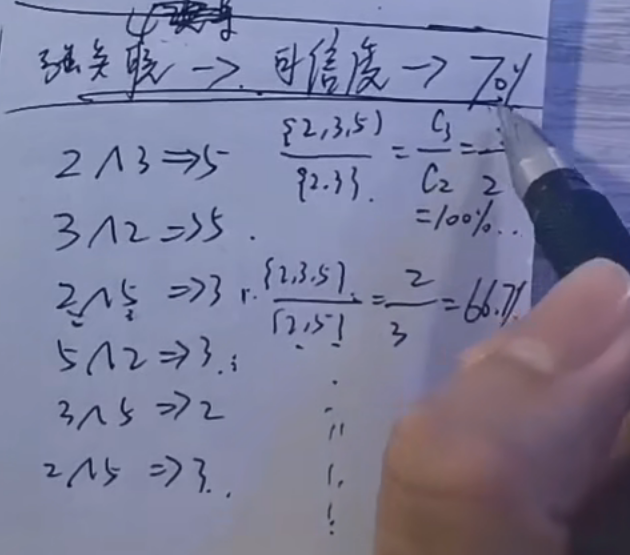 强关联 → 可信度 → 70%
2∧3⇒5 {2,3,5}/{2,3} = C3/C2 = /2 = 100%..
3∧2⇒5.
2∧5⇒3 {2,3,5}/{2,5} = 2/3 = 66.7%
5∧2⇒3
3∧5⇒2
2∧5⇒3..